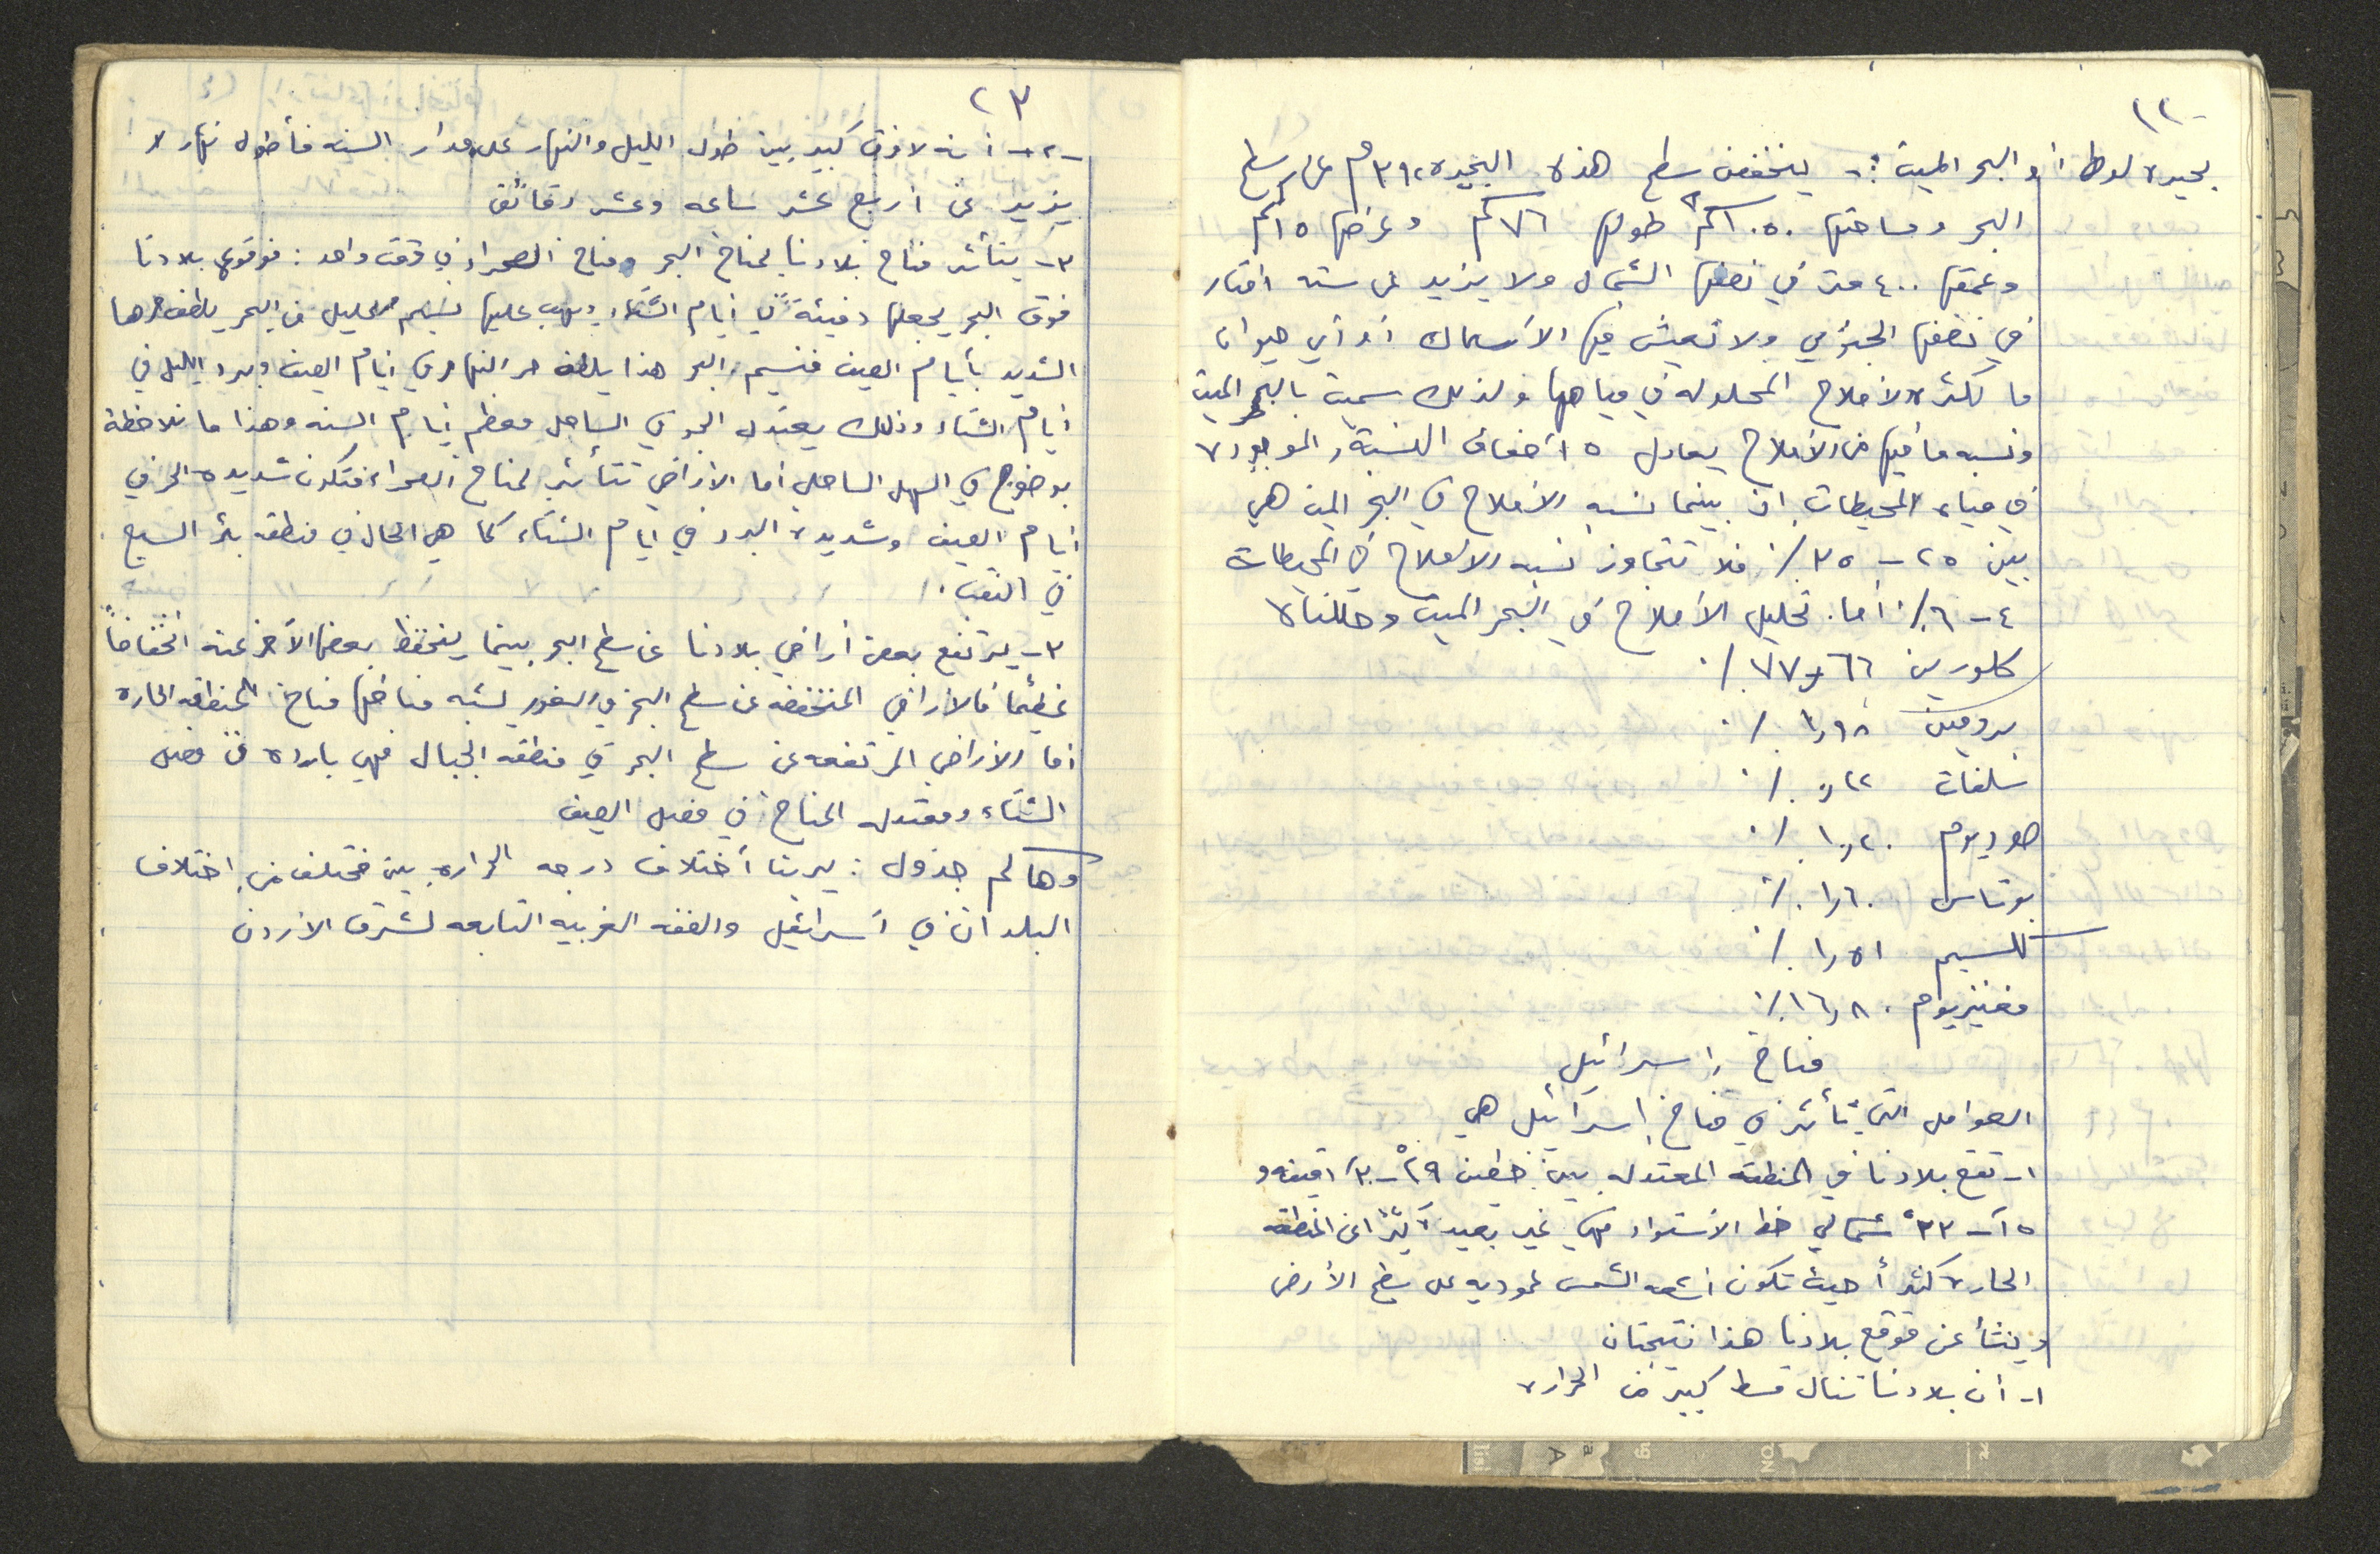 ٢٢
بحيرة لوط أو البحر الميت :- ينخفض سطح هذه البحيره ٣٩٢م عن سطح
البحر ومساحتها ١٠٥٠كم٢ طولها ٧٦كم وعرضها ١٥كم
وعمقها ٤٠٠ متر في نصفها الشمالي ولا يزيد عن سته امتار
في نصفها الجنوبي ولا تعيش فيها الأسماك أو أي حيوان
ما لكثرة الأملاح المحلوله في مياهها ولذلك سميت بالبحر الميت
ونسبه ما فيها من الأملاح يعادل ٥ أضعاف النسبة الموجودة
في مياه المحيطات اذ بينما نسبه الأملاح في البحر الميت هي
بين ٢٥ - ٣٥٪ فلا تتجاوز نسبه الأملاح في المحيطات
٤ - ٦٪ أما تحليل الأملاح في البحر الميت وحللناه
كلورين ٦٦و٧٧٪
برومين ١٫٩٨٪
سلفات ٢٢٫٪
صوديوم ١٠٫٢٠٪
بوتاس ١٫٦٠٪
كلسيم ١٫٥١٪
مغنيزيوم ١٦٫٨٠٪
مناخ اسرائيل
العوامل التي تأثر في مناخ اسرائيل هي
١- تقع بلادنا في المنطقه المعتدله بين خطين ٢٩°-٣٠ دقيقه و
١٥-٣٣° شمالي خط الأستواء فهي غير بعيدة كثيرًا عن المنطقه
الحارة كثيرأ حيث تكون اشعه الشمس عموديه على سطح الأرض
وينشأ عن موقع بلادنا هذا نتيجتان
١- أن بلادنا تنال قسط كبير من الحراره
٢٣
-٢- أنه لا فرق كبير بين طول الليل والنهار على مدار السنه فأطول نهار لا
يزيد عن أربع عشر ساعه وعشر دقائق
٣- يتأثر مناخ بلادنا لمناخ البحر ومناخ الصحراء في وقت واحد : فوقوع بلادنا
فوق البحر يجعلها دفيئةً في أيام الشتاء ويهب عليها نسيم عليل من البحر يلطف حرها
الشديد بأيام الصيف فنسيم البحر هذا يلطف حر النهار في ايام الصيف وبرد الليل في
أيام الشتاء وذلك يعتدل الجو في الساحل معظم أيام السنه وهذا ما نلاحظة
بوضوح في السهل الساحلي أما الأراضي تتأثر لمناخ الصحراء فتكون شديده الحر في
أيام الصيف وشديدة البرد في ايام الشتاء كما هي الحال في منطقه بئر السبع
في النقب .
٣- يرتفع بعض أراضي بلادنا عن سطح البحر بينما ينخفظ بعضها الأخر عنه انخفاضاً
عظيما فالأراضي المنخفضه عن سطح البحر في الغور يشبه مناخها مناخ المناطق الحاره
أما الاراضي المرتفعه عن سطح البحر في منطقه الجبال فهي بارده في فصل
الشتاء ومعتدله المناخ في فصل الصيف
وهاكم جدول : يرينا أختلاف درجه الحراره بين مختلف من اختلاف
البلدان في أسرائيل والضفه الغربيه التابعه لشرق الأردن